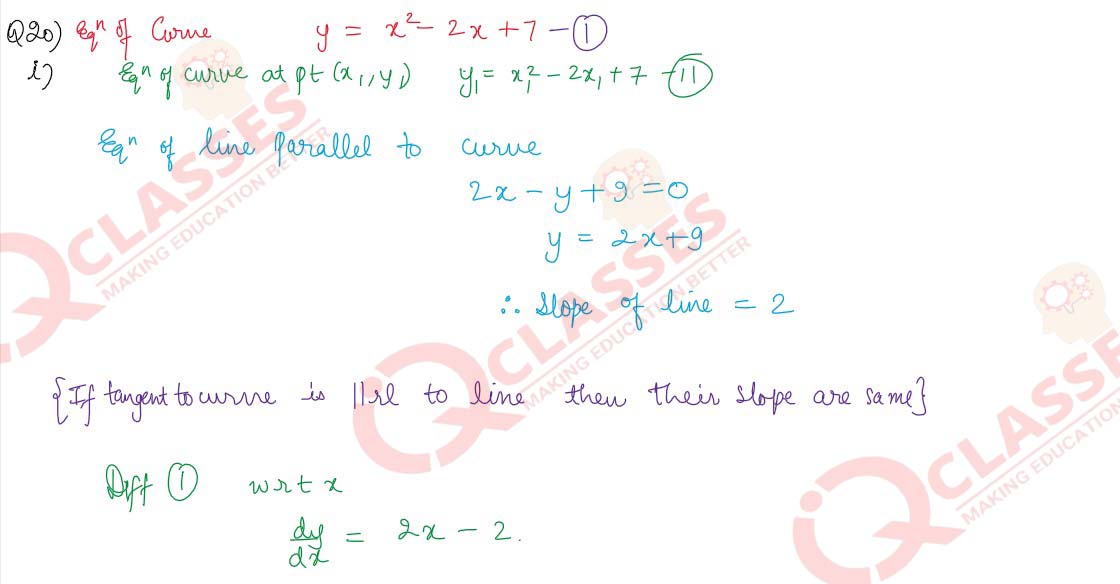 Q20) Eqⁿ of Curve y = x² - 2x + 7 - ①
i) Eqⁿ of curve at pt (x₁, y₁) y₁ = x₁² - 2x₁ + 7 - ⑪
Eqⁿ of line parallel to curve
2x - y + 9 = 0
y = 2x + 9
∴ Slope of line = 2
{If tangent to curve is ||rl to line then their slope are same}
Diff ① wrt x
dy/dx = 2x - 2.
QCLASSES
MAKING EDUCATION BETTER
QCLASSES
MAKING EDUCATION BETTER
QCLASSES
MAKING EDUCATION